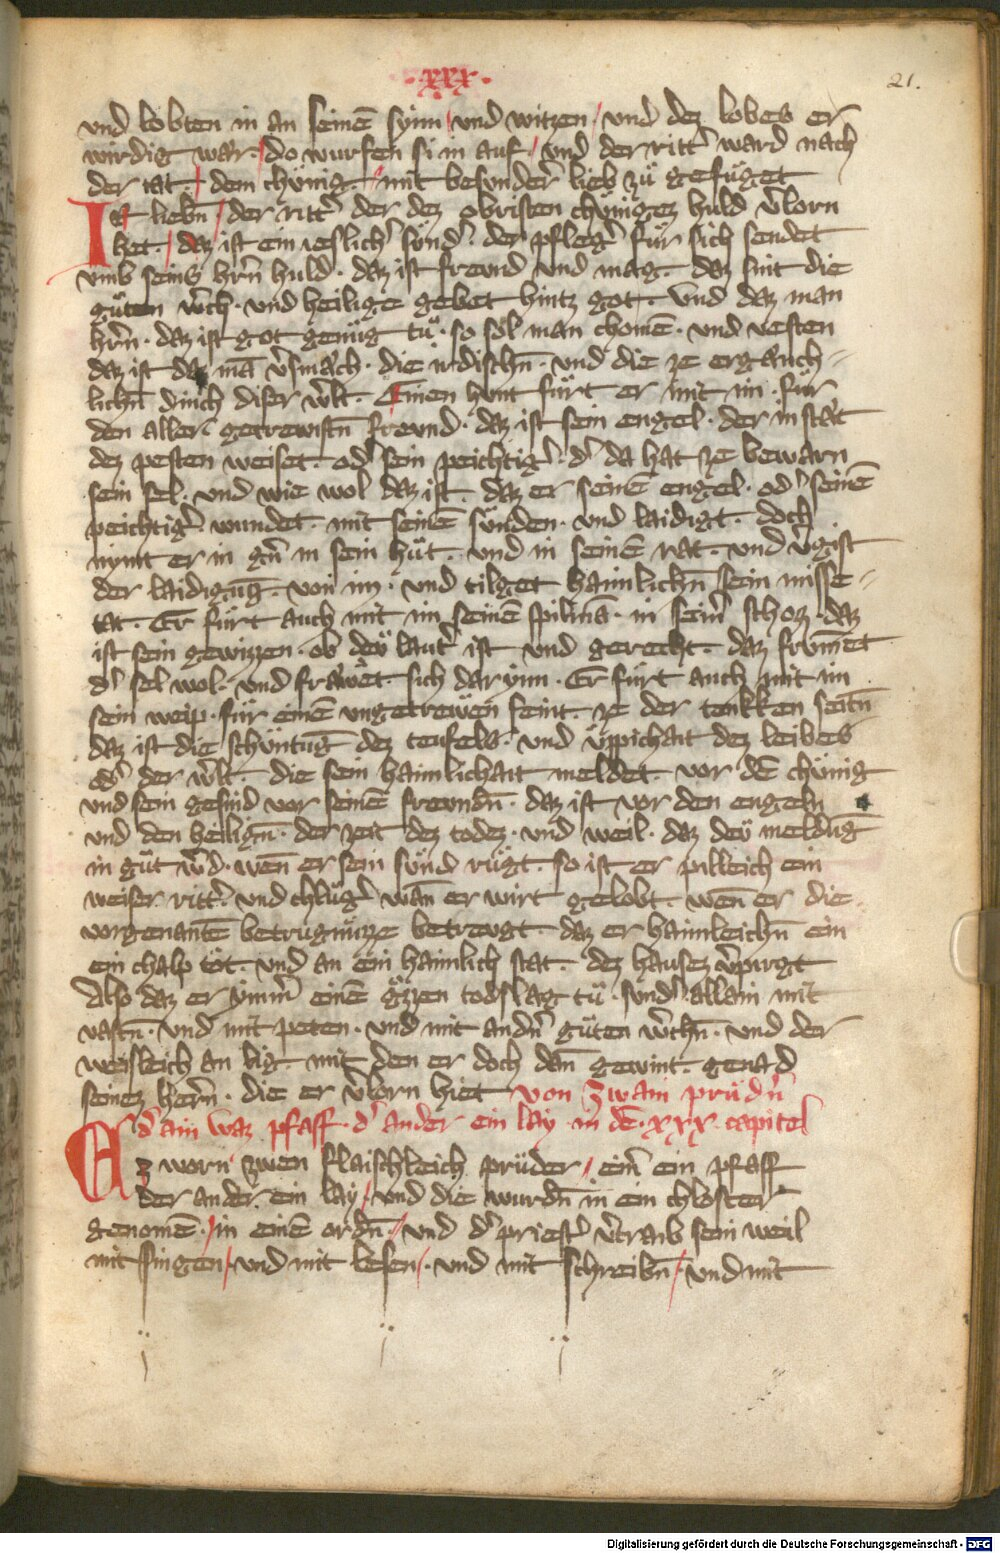 ·xxx·
21.
vnd lobten in an seinē synn / vnd witzen / vnd dez lobes er
wirdig wär · / do wurfen si in auf / vnd der ritt' ward nach
der tat · / dem chünig · / mit besunder' lieb zü gefüget
Ir liebn̄ / der ritt' der dez obristen chünigez huld v'lorn
het · / daz ist ein ieslich' sünd' · der pfleg' für sich sendet
vmb seins hrn̄ huld · daz ist freund vnd mag · daz sint die
güten w'ch · vnd heilige gebet hintz got · Vnd daz man
hrn̄ · daz ist got genüg tü · so sol man chomē · vnd vesten
daz ist daz mā v'smäch · die irdischn̄ · vnd die ze ergänch-
lichn̄ dinch diser w'lt · Einen hunt fürt er mit im · für
den aller getrewistn̄ freund · daz ist sein engel · der in stät
dez pesten weiset · od' sein peichtig' · d' da hat ze bewarn
sein sel · vnd wie wol daz ist · daz er seinē engel · od' seinē
peichtig' · wundet · mit seinē sünden · vnd laidigt · doch
nymt er in gn̄ in sein hüt · vnd in seinē rat · vnd v'gist
der laidigūg · von im · vnd tilget haimlichn̄ sein misse-
tat · Er fürt auch mit im seinē spilmā · in seim' schoz · daz
ist sein gewizzen · ob deü laut' ist vnd gerecht · daz frūmet
d' sel wol · vnd fräwet · sich dar ynn · Er fürt auch mit im
sein weip · für einē vngetrewen feint · ze der tenkken seitn̄
daz ist die schüntūg dez teufels · vnd üppichait dez leibes
od' der w'lt · die sein haimlichait meldet · vor dē chünig
vnd sein gesind vor seinē freundn̄ · daz ist vor den engeln
vnd den heilign̄ · der zeit dez todez · vnd weil · daz deü meldūg
in güt w'd · wen̄ er sein sünd rügt · so ist er pilleich ein
weiser ritt' · vnd chlüg' wan̄ er wirt gelobt · wen̄ er die
vorgenantē betrugnüzze betreugt · daz er haimleichn̄ ein
ein chalp töt · vnd an ein haimlich stat · dez hausez v'pirgt
Also daz er ymm' einē gözzen todslag tü · sund' allain mit
vastn̄ · vnd mit peten · vnd mit andn̄ güten w'chn̄ · vnd der
weisleich an lig · mit den er doch dan̄ gewint · genad
seinez hern̄ · die er v'lorn hiet von zwain prüdn̄
d' ain waz pfaff · d' ander ein lay in dē · xxx · capitel
Ez worn zwen flaischleich prüder / ein' ein pfaff
der ander ein lay / vnd die wurdn̄ in ein chloster
genomē · / in einē ordn̄ · / vnd d' priest' v'traib sein weil
mit singen / vnd mit lesen / · vnd mit schreibn̄ / · vnd mit
Digitalisierung gefördert durch die Deutsche Forschungsgemeinschaft - DFG